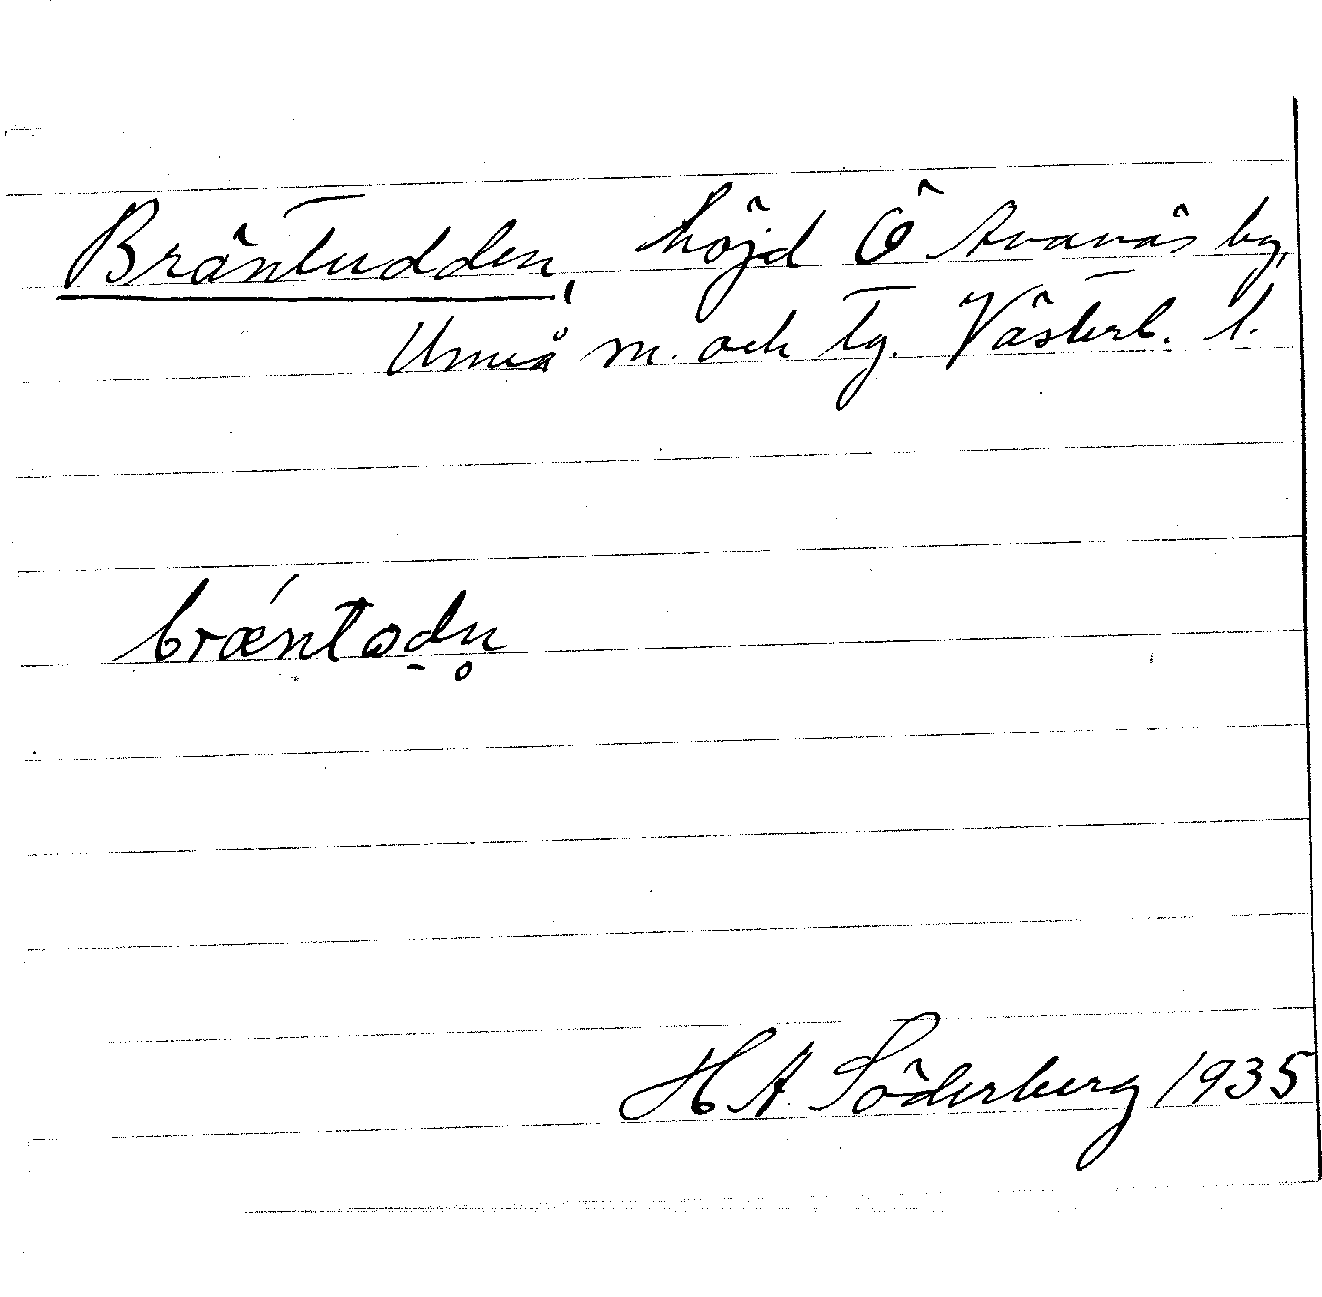 Bräntudden, höjd Ö Avanäs by,
Umeå m. och tg. Västerb. l.
bræ´ntɷdn̥
H A Söderberg 1935